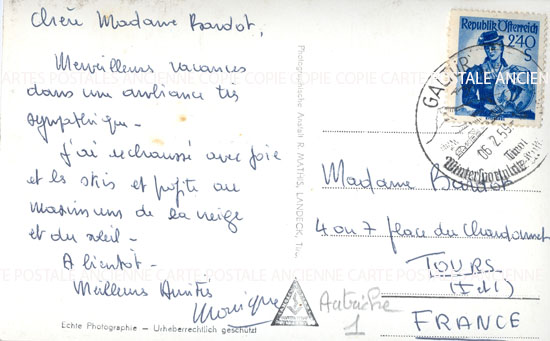 Chère Madame Bardot,
Merveilleuses vacances
dans une ambiance très
sympathique -
J'ai rechaussé avec joie
et les skis et profite au
maximum de la neige
et du soleil -
A bientôt -
Meilleures Amitiés
Monique
Echte Photographie — Urheberrechtlich geschützt
Photographische Anstalt R. MATHIS, LANDECK, Tirol
Republik Österreich
2.40
S
GALTÜR
06.2.55
Tirol
Wintersportplatz
Madame Bardot
4 ou 7 place du Chardonnet
TOURS
(I et L)
FRANCE
Autriche
1
CARTE POSTALE ANCIENNE CARTE POSTALE ANCIENNE